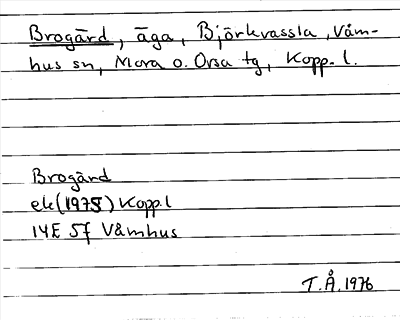 Brogärd, äga, Björkvassla, Våm-
hus sn, Mora o. Orsa tg, Kopp. l.
Brogärd
ek (1975) Kopp.l
14E 5f Våmhus
T.Å. 1976